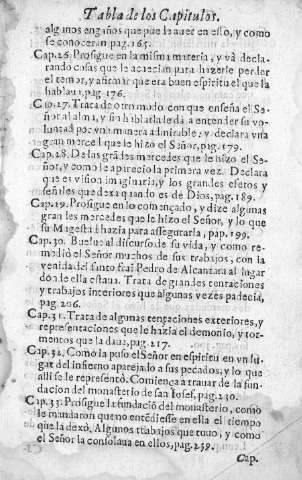 Tabla de los Capitulos.
algunos engaños que puede auer en esto, y como
se conoceran pag.165.
Cap.26. Prosigue en la misma materia, y va decla-
rando cosas que le acaecian para hazerle perder
el temor, y afirmar que era buen espiritu el que la
hablaua, pag.176.
Cap.27. Trata de otro modo con que enseña el Se-
ñor al alma, y sin hablarla le da a entender su vo-
luntad por vna manera admirable; y declara vna
gran merced que le hizo el Señor, pag.179.
Cap.28. De las grãdes mercedes que le hizo el Se-
ñor, y como le aparecio la primera vez. Declara
que es vision imaginaria, y los grandes efetos y
señales que dexa quando es de Dios, pag.189.
Cap.29. Prosigue en lo començado, y dize algunas
grandes mercedes que le hizo el Señor, y lo que
su Magestad hazia para assegurarla, pag.199.
Cap.30. Buelue al discurso de su vida, y como re-
medió el Señor muchos de sus trabajos, con la
venida del santo frai Pedro de Alcantara al lugar
dõde ella estaua. Trata de grandes tentaciones
y trabajos interiores que algunas vezes padecia,
pag.206.
Cap.31. Trata de algunas tentaciones exteriores, y
representaciones que le hazia el demonio, y tor-
mentos que la daua, pag.217.
Cap.32. Como la puso el Señor en espiritu en vn lu-
gar del infierno aparejado a sus pecados, y lo que
alli se le representó. Comiença a tratar de la fun-
dacion del monasterio de san Iosef, pag.230.
Cap.33. Prosigue la fundació del monasterio, como
le mandaron que no entẽdiesse en ella el tiempo
que la dexó. Algunos trabajos que tuuo, y como
el Señor la consolaua en ellos, pag.239.
Cap.